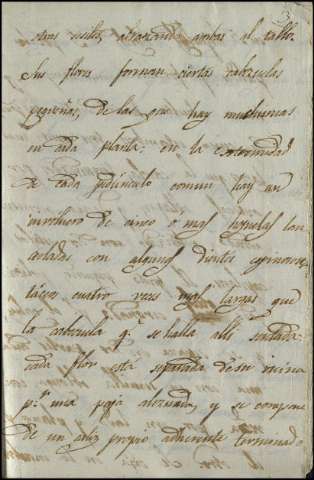 3
abrazando ambas al tallo.
Sus flores forman ciertas cabezuelas
pequeñas, de las que hay muchisimas
en cada planta: en la extremidad
de cada pedúnculo comun hay un
involucro de cinco ó mas hojuelas lan
ceoladas con algunos dientes espinosos
cuatro veces mas largas que
la cabezuela q.e se halla alli sentada:
cada flor está separada de su vecina
p.r una paja aleznada, y se compone
de un caliz propio adherente terminado